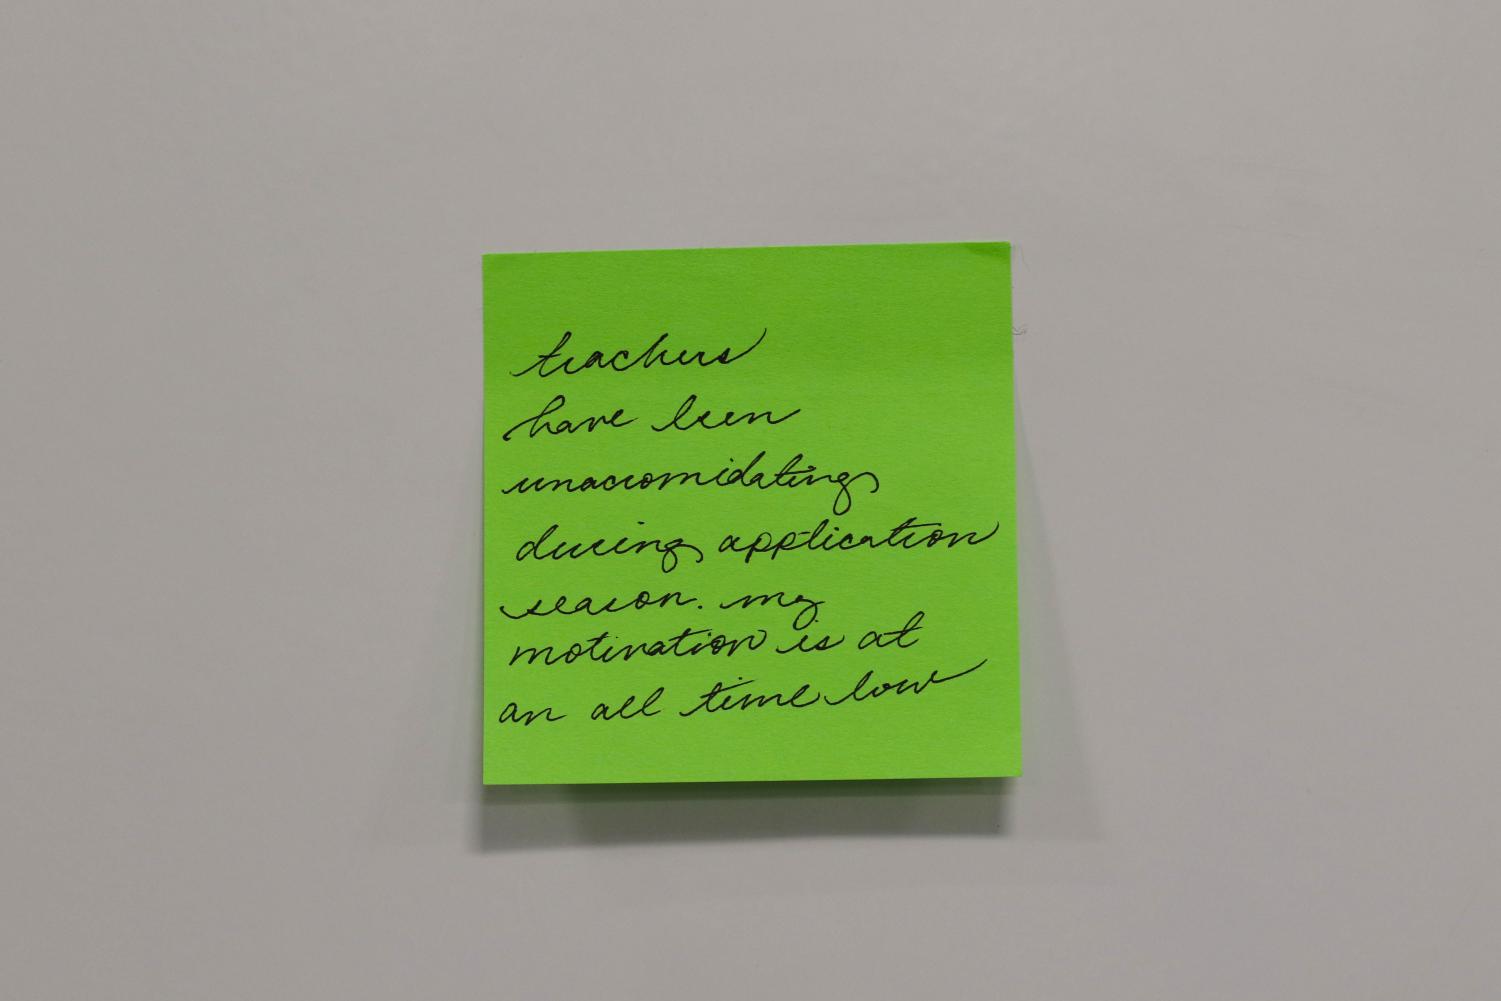 teachers
have been
unaccomidating
during application
season. my
motivation is at
an all time low